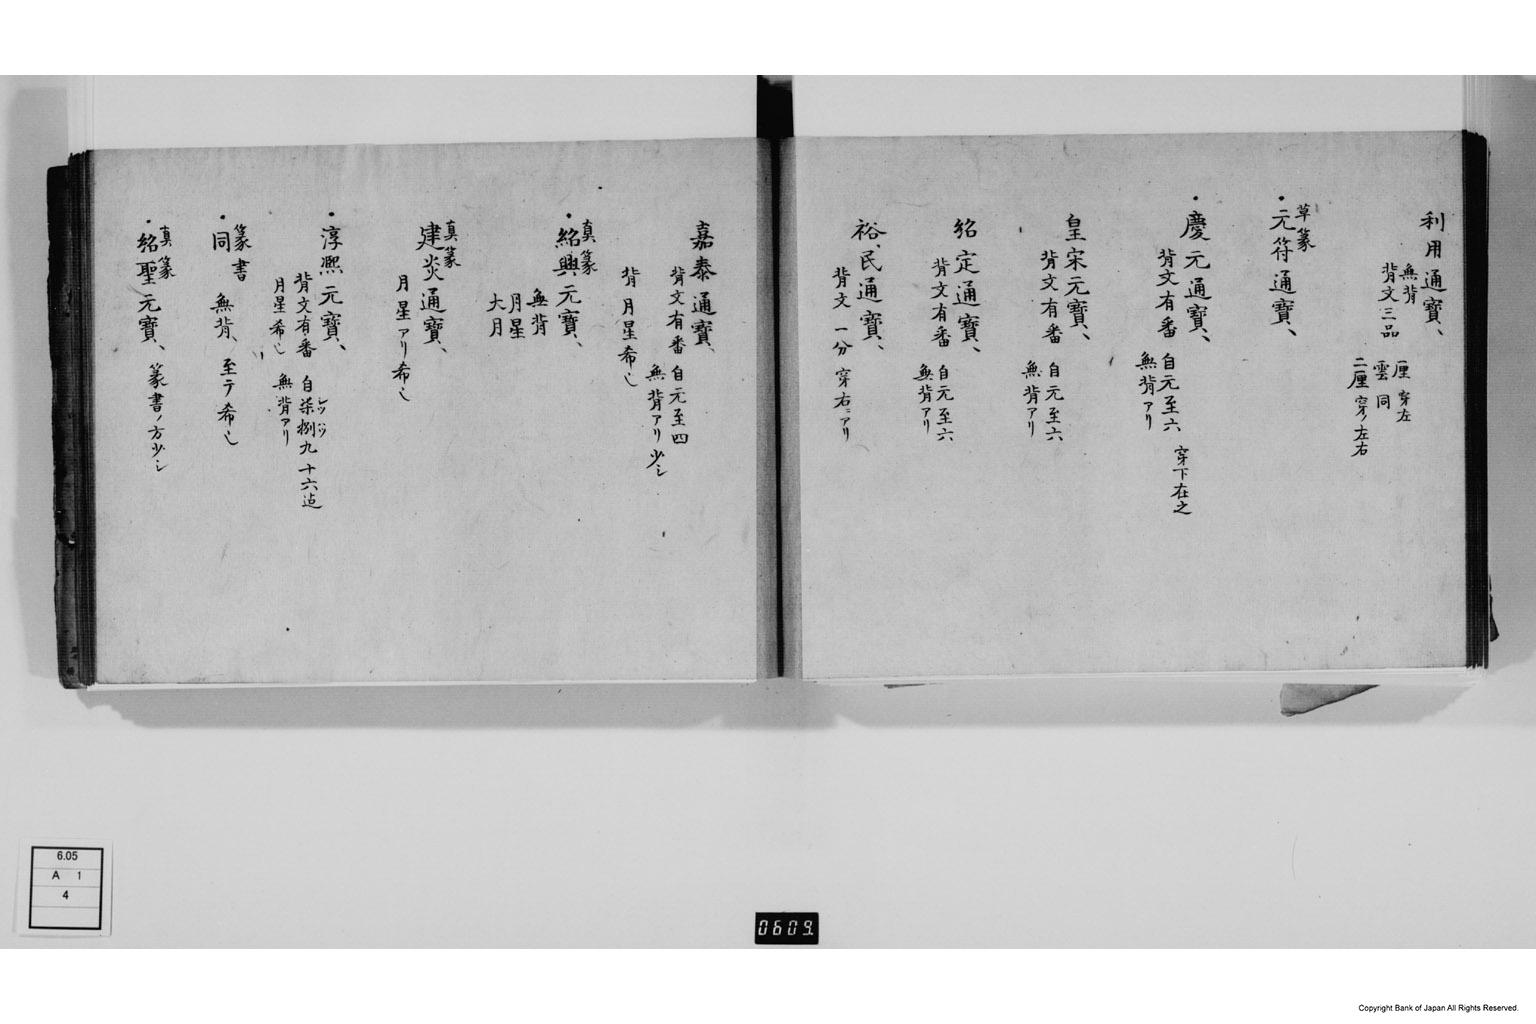 利用通寳、
無背
背文三品
厘 穿左
雲 同
二厘 穿ノ左右
草篆
・元符通寳、
・慶元通寳、
背文有番 自元至六 穿下在之
無背アリ
皇宋元寳、
背文有番 自元至六
無背アリ
紹定通寳、
背文有番 自元至六
無背アリ
裕民通寳、
背文 一分 穿右ニアリ
嘉泰通寳、
背文有番 自元至四
無背アリ 少シ
背 月星希也
真篆
・紹興元寳、
無背
月星
大月
真篆
建炎通寳、
月星アリ希也
・淳熈元寳、
背文有番 自柒捌九十六迠
無背アリ
月星希也
篆書
・同 無背、至テ希也
真篆
・紹聖元寳、篆書ノ方少シ
6.05
A 1
4
0609.
Copyright Bank of Japan All Rights Reserved.